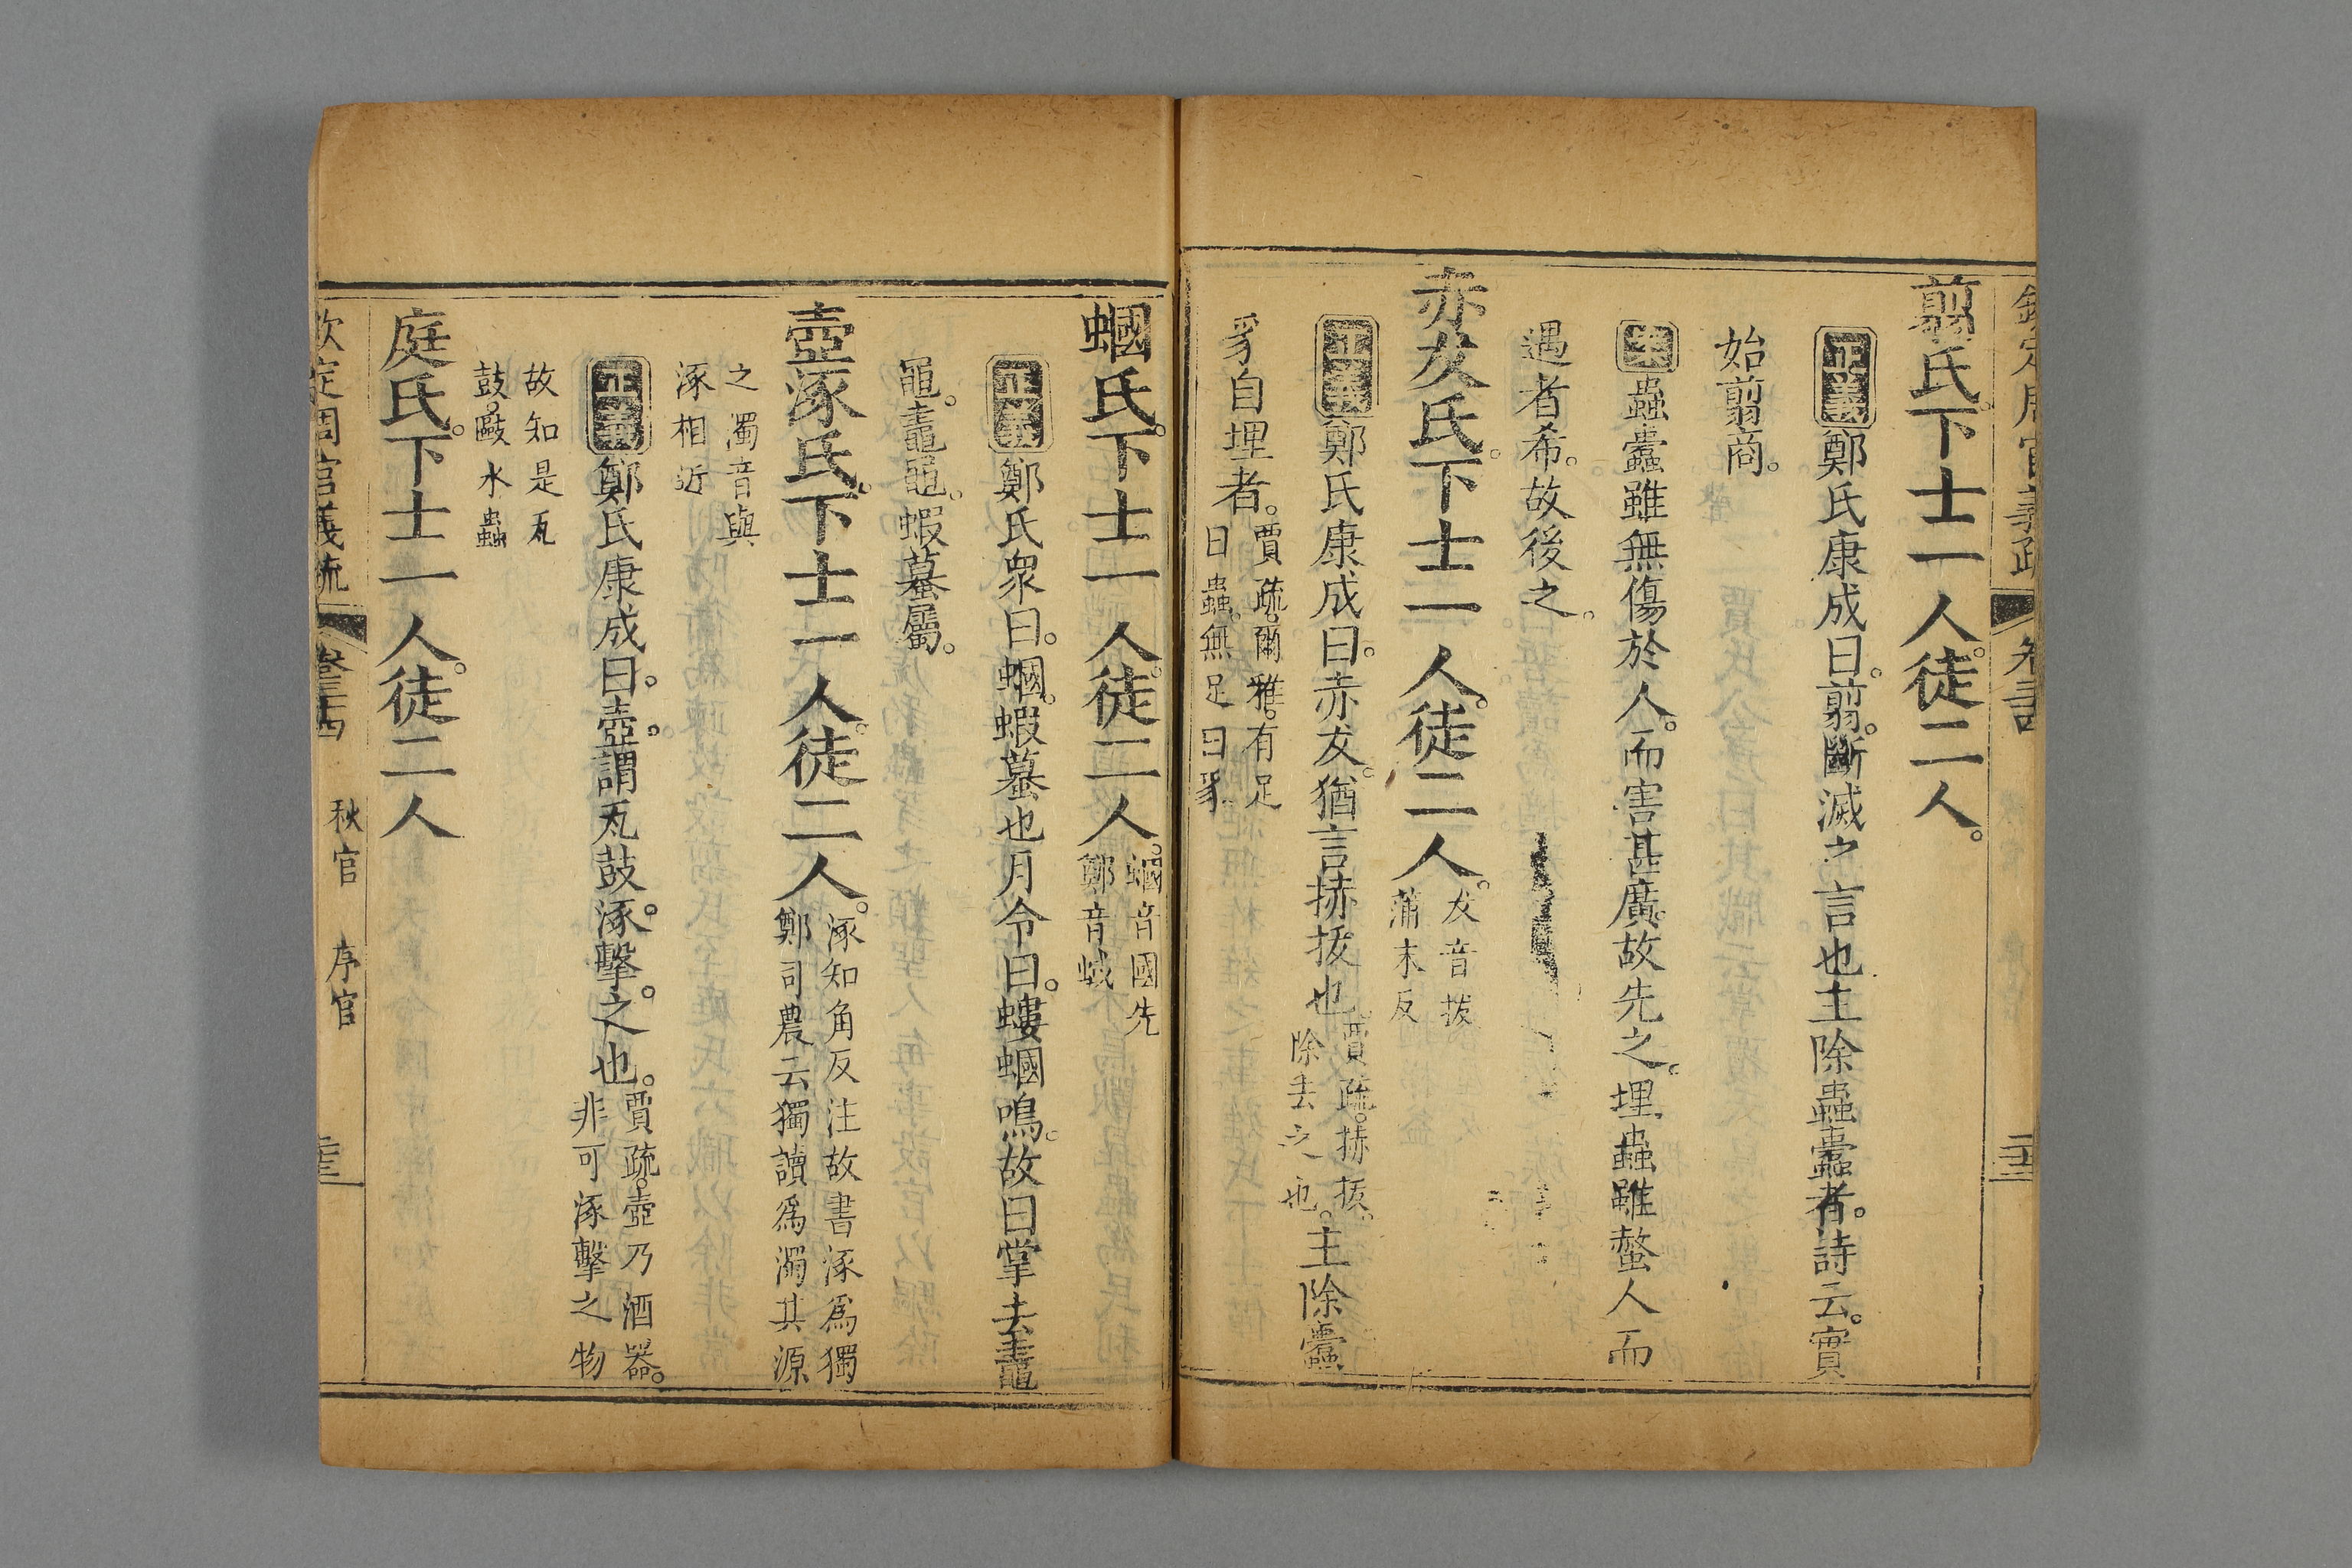 欽定周官義疏 卷三十四
翦氏下士一人。徒二人。
正義鄭氏康成曰。翦。斷滅之言也主除蟲蠹者。詩云。實
始翦商。
案蟲蠹雖無傷於人。而害甚廣。故先之。埋蟲雖螫人而
遇者希。故後之。
赤犮氏。下士一人。徒二人。
犮音拔
蒲末反
正義鄭氏康成曰。赤犮。猶言捇拔也
賈疏。捇拔。
除去之也。
主除蠹
豸自埋者。
賈疏。爾雅。有足
曰蟲。無足曰豸。
蟈氏。下士一人。徒二人。
蟈音國先
鄭音蜮
正義鄭氏衆曰。蟈。蝦蟇也月令曰。螻蟈鳴。故曰掌去鼃
黽。鼃黽。蝦蟇屬。
壺涿氏。下士一人。徒二人。
涿知角反注故書涿爲獨
鄭司農云獨讀爲濁其源
之濁音與
涿相近
正義鄭氏康成曰。壺。謂瓦鼓涿。擊之也。
賈疏。壺乃酒器。
非可涿擊之物
故知是瓦
鼓。敺水蟲
庭氏。下士一人。徒二人
欽定周官義疏 卷三十四 秋官 序官